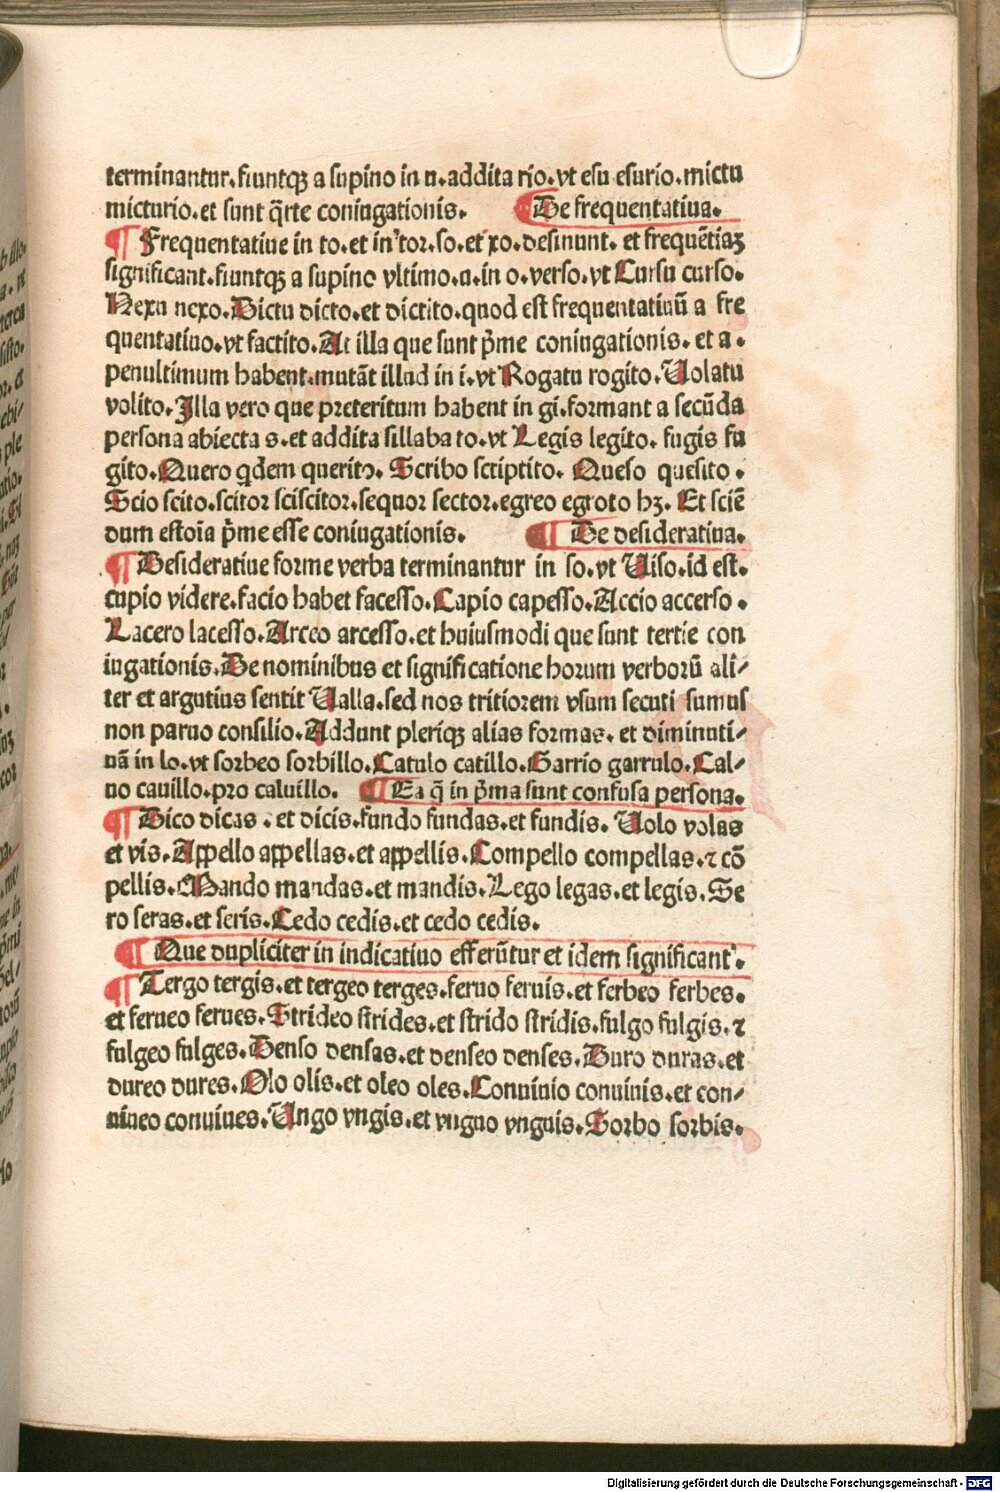 terminantur.fiuntqꝫ a supino in u.addita rio.vt esu esurio.mictu
micturio.et sunt q̄rte coniugationis. ¶ De frequentatiua.
¶ Frequentatiue in to.et in tor.so.et xo.desinunt. et frequētiaꝫ
significant.fiuntqꝫ a supino vltimo.u.in o.verso.vt Cursu curso.
Nexu nexo.Dictu dicto.et dictito.quod est frequentatiuū a fre
quentatiuo.vt factito.At illa que sunt p̄me coniugationis. et a.
penultimum habent.mutāt illud in i.vt Rogatu rogito.Uolatu
volito.Illa vero que preteritum habent in gi.formant a secūda
persona abiecta s.et addita sillaba to.vt Legis legito. fugis fu
gito.Quero qdem querito. Scribo scriptito. Queso quesito.
Scio scito.scitor sciscitor.sequor sector.egreo egroto hꝫ. Et sciē
dum est oīa p̄me esse coniugationis. ¶ De desideratiua.
¶ Desideratiue forme verba terminantur in so.vt Uiso.id est.
cupio videre.facio habet facesso.Capio capesso.Accio accerso.
Lacero lacesso.Arceo arcesso.et huiusmodi que sunt tertie con
iugationis.De nominibus et significatione horum verborū ali/
ter et argutius sentit Ualla.sed nos tritiorem vsum secuti sumus
non paruo consilio.Addunt pleriqꝫ alias formas. et diminuti/
uā in lo.vt sorbeo sorbillo.Catulo catillo.Garrio garrulo.Cal/
uo cauillo.pro caluillo. ¶ Ea q̄ in p̄ma sunt confusa persona.
¶ Dico dicas.et dicis.fundo fundas.et fundis. Uolo volas
et vis.Appello appellas.et appellis.Compello compellas.⁊ cō
pellis.Mando mandas.et mandis.Lego legas.et legis.Se
ro seras.et seris.Cedo cedis.et cedo cedis.
¶ Que dupliciter in indicatiuo efferūtur et idem significant'.
¶ Tergo tergis.et tergeo terges.feruo feruis.et ferbeo ferbes.
et ferueo ferues.Strideo strides.et strido stridis.fulgo fulgis.⁊
fulgeo fulges.Denso densas.et denseo denses.Duro duras.et
dureo dures.Olo olis.et oleo oles.Conuinio conuinis.et con/
niueo conuiues.Ungo vngis.et vnguo vnguis.Sorbo sorbis.
Digitalisierung gefördert durch die Deutsche Forschungsgemeinschaft - DFG